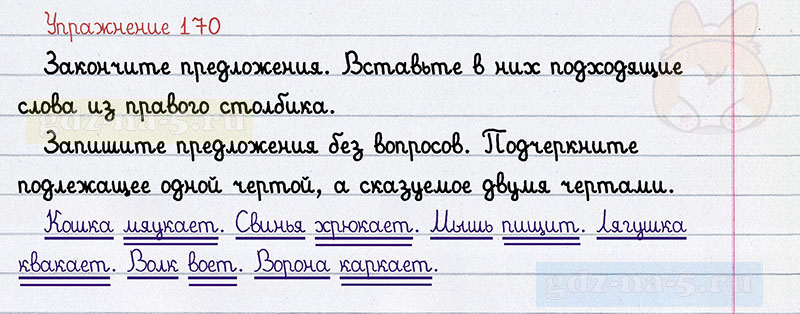 Упражнение 170
Закончите предложения. Вставьте в них подходящие
слова из правого столбика.
Запишите предложения без вопросов. Подчеркните
подлежащее одной чертой, а сказуемое двумя чертами.
Кошка мяукает. Свинья хрюкает. Мышь пищит. Лягушка
квакает. Волк воет. Ворона каркает.
gdz-na-5.ru
gdz-na-5.ru